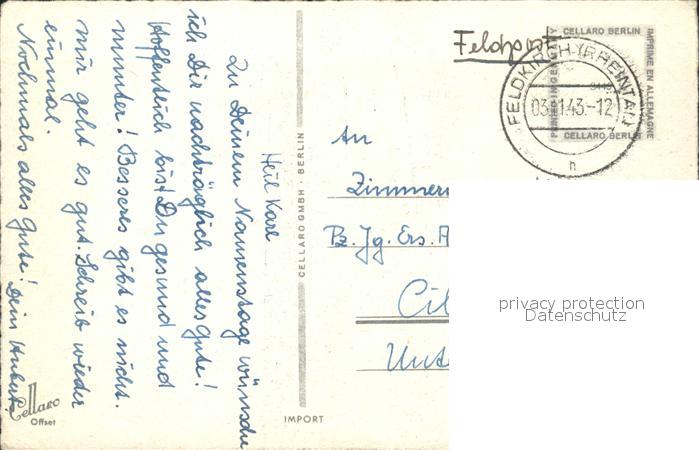 Heil Karl
Zu Deinem Namenstage wünsche
ich Dir nachträglich alles Gute!
Hoffentlich bist Du gesund und
munter! Besseres gibt es nicht.
mir geht es gut. Schreib wieder
einmal.
Nochmals alles Gute! Dein Hubert
Cellaro
Offset
CELLARO GMBH · BERLIN
IMPORT
Feldpost
CELLARO BERLIN
IMPRIMÉ EN ALLEMAGNE
CELLARO BERLIN
PRINTED IN GERMANY
FELDKIRCH (RHEINTAL)
43.-12
h
An
Zimmer
Pz. Jg. Ers. A
Cil
Unt
privacy protection
Datenschutz